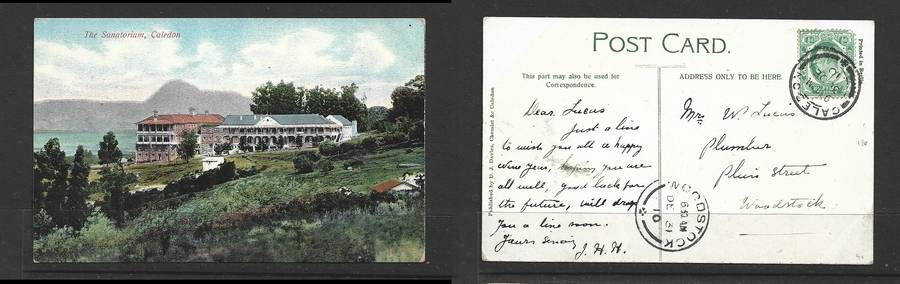 The Sanatorium, Caledon
POST CARD.
This part may also be used for
Correspondence.
ADDRESS ONLY TO BE HERE.
Printed in
Published by D. J. Davies, Chemist &c Caledon
Dear Lucas
Just a line
to wish you all a happy
New Year, hoping you are
all well, good luck for
the future, will drop
you a line soon.
Yours
J. H. H.
Mrs W. Lucas
Plumber
Plein Street
Woodstock
CALEDON
WOODSTOCK
6 30 AM
DE 31
10